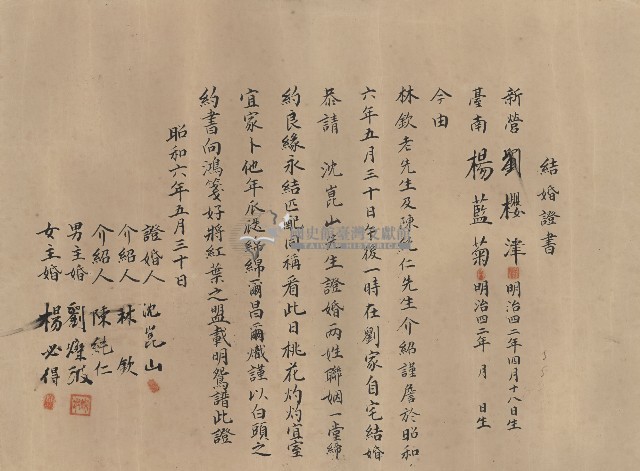 結婚證書
新營 劉櫻津 明治四二年四月十八日生
臺南 楊藍菊 明治四二年 月 日生
今由
林欽老先生及陳純仁先生介紹謹詹於昭和
六年五月三十日午後一時在劉家自宅結婚
恭請 沈崑山先生證婚兩姓聯姻一堂締
約良緣永結匹配同稱看此日桃花灼灼宜室
宜家卜他年瓜瓞綿綿爾昌爾熾謹以白頭之
約書向鴻箋好將紅葉之盟載明鴛譜此證
昭和六年五月三十日
證婚人 沈崑山
介紹人 林欽
介紹人 陳純仁
男主婚 劉燦
女主婚 楊必得
國史館臺灣文獻館
TAIWAN HISTORICA